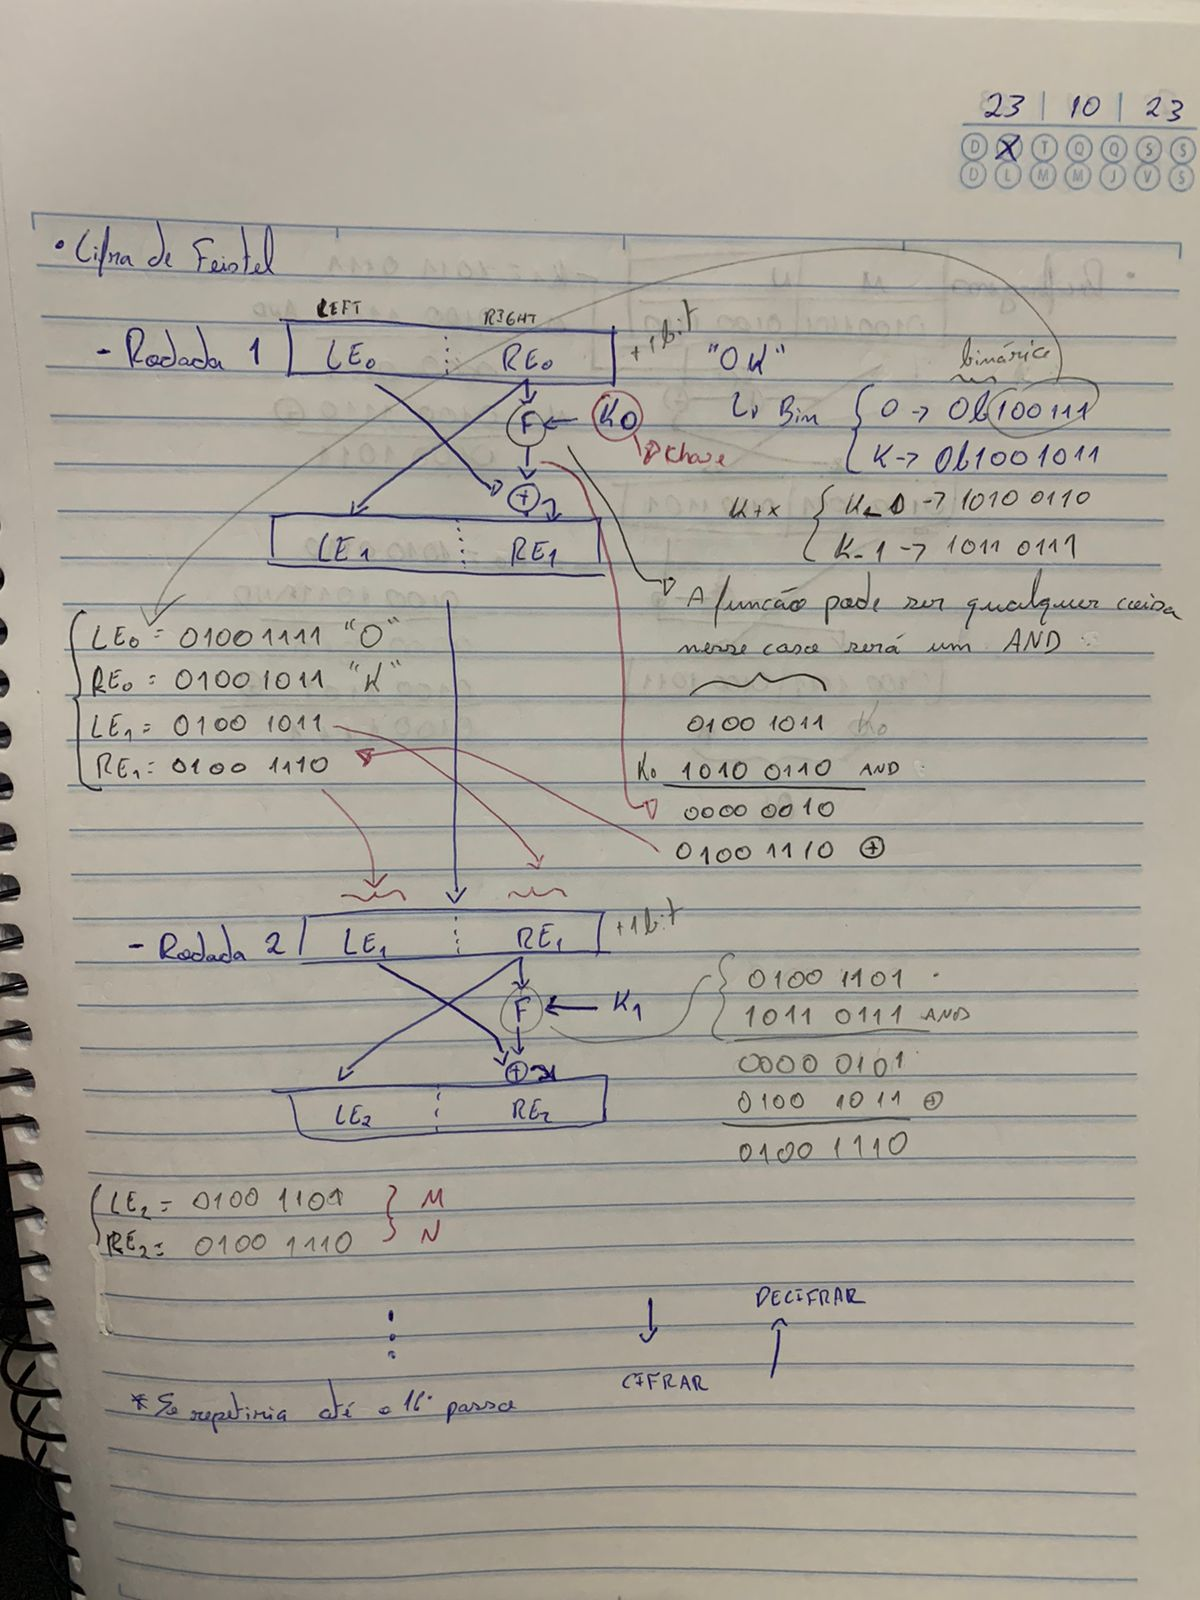 23 | 10 | 23
D X T Q Q S S
D L M M J V S
• Cifra de Feistel
LEFT RIGHT
- Rodada 1 LE₀ RE₀ +1bit "OK"
binário
F ← K0 ↳ Bin { O → 0b100111
chave K → 0b1001011
+
K+x { K_0 → 1010 0110
LE₁ RE₁ K-1 → 1011 0111
A função pode ser qualquer coisa
nesse caso será um AND
LE₀ = 01001111 "O"
RE₀ = 01001011 "K"
LE₁ = 0100 1011
RE₁ = 0100 1110
0100 1011 K₀
K₀ 1010 0110 AND
0000 0010
0100 1110 ⊕
- Rodada 2 LE₁ RE₁ +1bit
F ← K₁
⊕
LE₂ RE₂
0100 1101
1011 0111 AND
0000 0101
0100 1011 ⊕
0100 1110
LE₂ = 0100 1101 } M
RE₂ = 0100 1110 } N
DECIFRAR
CIFRAR
* Se repetiria até o 16° passo